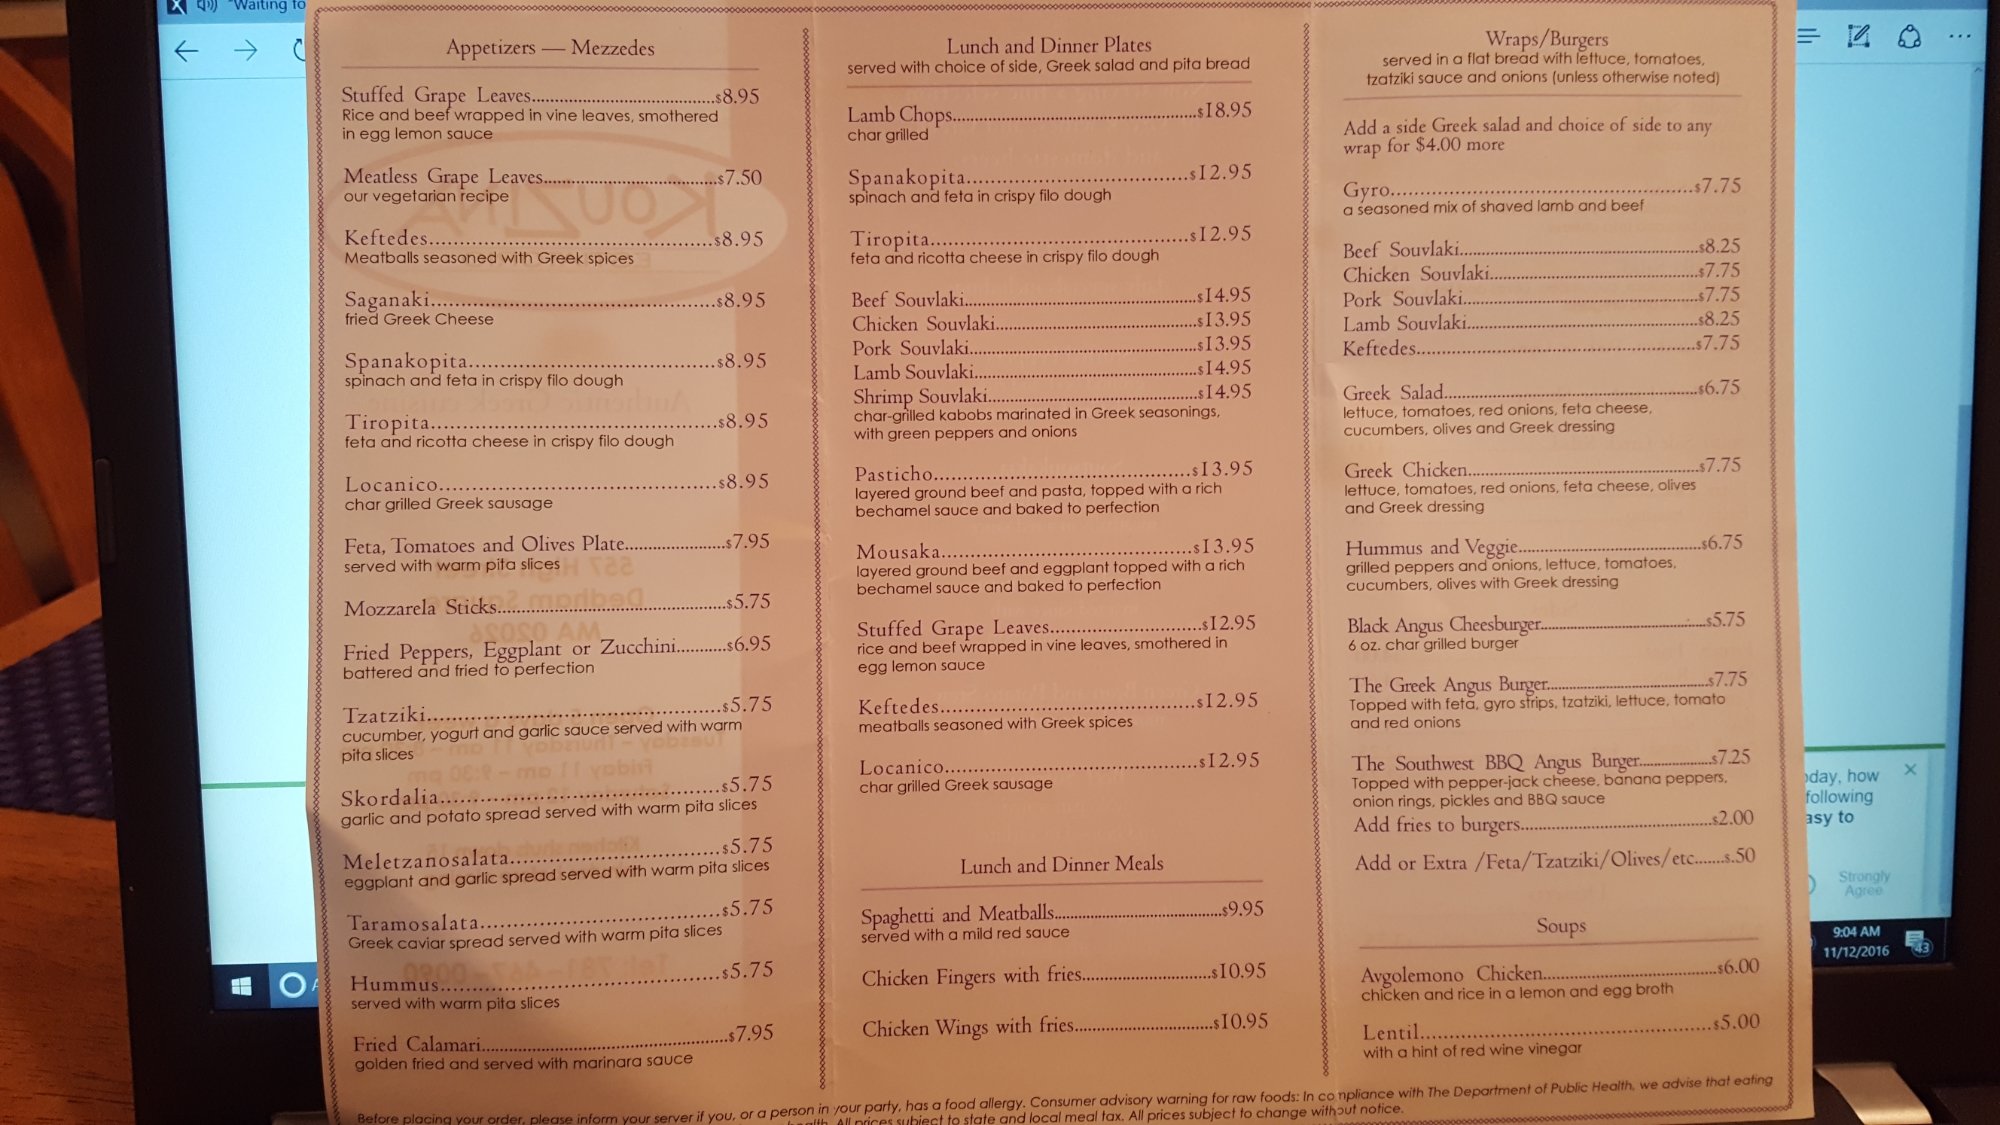 "Waiting to
Appetizers — Mezzedes
Stuffed Grape Leaves....................$8.95
Rice and beef wrapped in vine leaves, smothered
in egg lemon sauce
Meatless Grape Leaves....................$7.50
our vegetarian recipe
Keftedes....................$8.95
Meatballs seasoned with Greek spices
Saganaki....................$8.95
fried Greek Cheese
Spanakopita....................$8.95
spinach and feta in crispy filo dough
Tiropita....................$8.95
feta and ricotta cheese in crispy filo dough
Locanico....................$8.95
char grilled Greek sausage
Feta, Tomatoes and Olives Plate....................$7.95
served with warm pita slices
Mozzarela Sticks....................$5.75
Fried Peppers, Eggplant or Zucchini...........$6.95
battered and fried to perfection
Tzatziki....................$5.75
cucumber, yogurt and garlic sauce served with warm
pita slices
Skordalia....................$5.75
garlic and potato spread served with warm pita slices
Meletzanosalata....................$5.75
eggplant and garlic spread served with warm pita slices
Taramosalata....................$5.75
Greek caviar spread served with warm pita slices
Hummus....................$5.75
served with warm pita slices
Fried Calamari....................$7.95
golden fried and served with marinara sauce
Lunch and Dinner Plates
served with choice of side, Greek salad and pita bread
Lamb Chops....................$18.95
char grilled
Spanakopita....................$12.95
spinach and feta in crispy filo dough
Tiropita....................$12.95
feta and ricotta cheese in crispy filo dough
Beef Souvlaki....................$14.95
Chicken Souvlaki....................$13.95
Pork Souvlaki....................$13.95
Lamb Souvlaki....................$14.95
Shrimp Souvlaki....................$14.95
char-grilled kabobs marinated in Greek seasonings,
with green peppers and onions
Pasticho....................$13.95
layered ground beef and pasta, topped with a rich
bechamel sauce and baked to perfection
Mousaka....................$13.95
layered ground beef and eggplant topped with a rich
bechamel sauce and baked to perfection
Stuffed Grape Leaves....................$12.95
rice and beef wrapped in vine leaves, smothered in
egg lemon sauce
Keftedes....................$12.95
meatballs seasoned with Greek spices
Locanico....................$12.95
char grilled Greek sausage
Lunch and Dinner Meals
Spaghetti and Meatballs....................$9.95
served with a mild red sauce
Chicken Fingers with fries....................$10.95
Chicken Wings with fries....................$10.95
Wraps/Burgers
served in a flat bread with lettuce, tomatoes,
tzatziki sauce and onions (unless otherwise noted)
Add a side Greek salad and choice of side to any
wrap for $4.00 more
Gyro....................$7.75
a seasoned mix of shaved lamb and beef
Beef Souvlaki....................$8.25
Chicken Souvlaki....................$7.75
Pork Souvlaki....................$7.75
Lamb Souvlaki....................$8.25
Keftedes....................$7.75
Greek Salad....................$6.75
lettuce, tomatoes, red onions, feta cheese,
cucumbers, olives and Greek dressing
Greek Chicken....................$7.75
lettuce, tomatoes, red onions, feta cheese, olives
and Greek dressing
Hummus and Veggie....................$6.75
grilled peppers and onions, lettuce, tomatoes,
cucumbers, olives with Greek dressing
Black Angus Cheesburger....................$5.75
6 oz. char grilled burger
The Greek Angus Burger....................$7.75
Topped with feta, gyro strips, tzatziki, lettuce, tomato
and red onions
The Southwest BBQ Angus Burger....................$7.25
Topped with pepper-jack cheese, banana peppers,
onion rings, pickles and BBQ sauce
Add fries to burgers....................$2.00
Add or Extra /Feta/Tzatziki/Olives/etc.......$.50
Soups
Avgolemono Chicken....................$6.00
chicken and rice in a lemon and egg broth
Lentil....................$5.00
with a hint of red wine vinegar
Before placing your order, please inform your server if you, or a person in your party, has a food allergy. Consumer advisory warning for raw foods: In compliance with The Department of Public Health, we advise that eating
All prices subject to state and local meal tax. All prices subject to change without notice.
day, how
following
asy to
Strongly
Agree
9:04 AM
11/12/2016
43